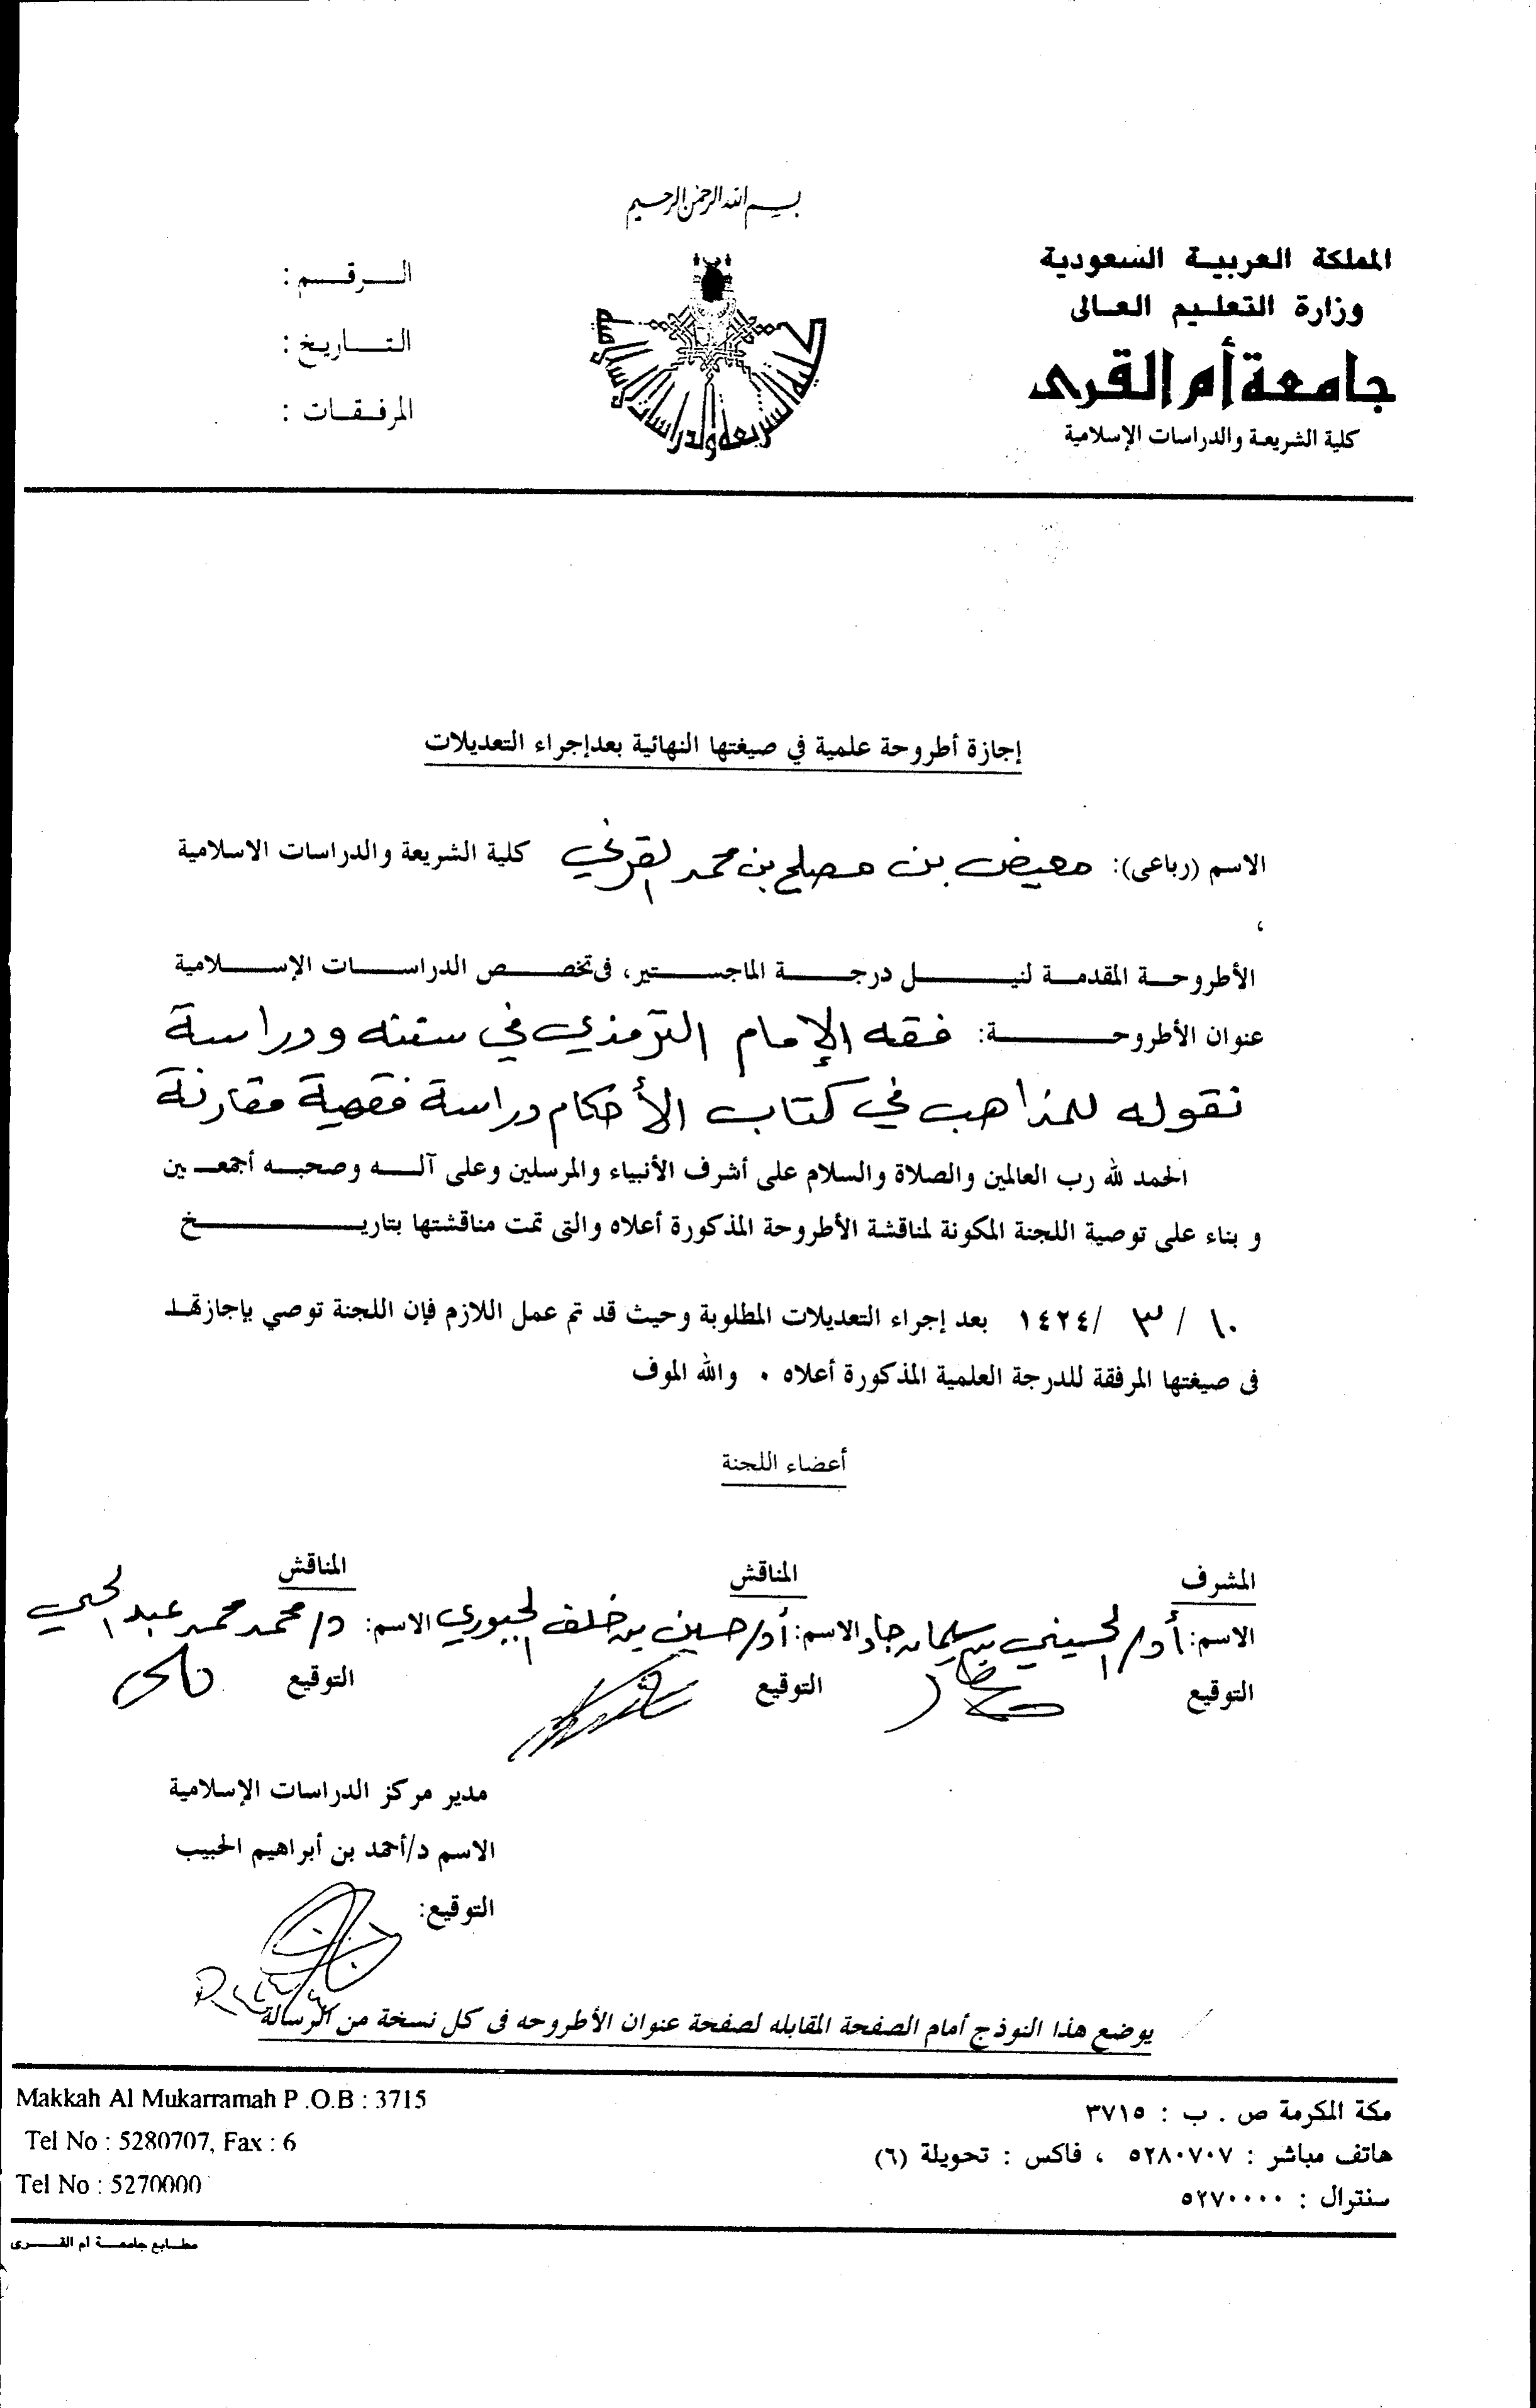 بسم الله الرحمن الرحيم
المملكة العربية السعودية
وزارة التعليم العالى
جامعة أم القرى
كلية الشريعة والدراسات الإسلامية
الرقم :
التاريخ :
المرفقات :
إجازة أطروحة علمية في صيغتها النهائية بعدإجراء التعديلات
الاسم (رباعى): معيض بن مصلح بن محمد القرني كلية الشريعة والدراسات الاسلامية
،
الأطروحة المقدمة لنيل درجة الماجستير، فى تخصص الدراسات الإسلامية
عنوان الأطروحة: فقه الإمام الترمذي في سننه ودراسة
نقوله للمذاهب في كتاب الأحكام دراسة فقهية مقارنة
الحمد لله رب العالمين والصلاة والسلام على أشرف الأنبياء والمرسلين وعلى آله وصحبه أجمعين
و بناء على توصية اللجنة المكونة لمناقشة الأطروحة المذكورة أعلاه والتى تمت مناقشتها بتاريخ
١٠ / ٣ / ١٤٢٤ بعد إجراء التعديلات المطلوبة وحيث قد تم عمل اللازم فإن اللجنة توصي بإجازتها
فى صيغتها المرفقة للدرجة العلمية المذكورة أعلاه . والله الموف
أعضاء اللجنة
المشرف المناقش المناقش
الاسم: أد/ الحسيني بن سليمان جاد الاسم: أد/ حسين بن خلف الجبوري الاسم: د/ محمد محمد عبد الحي
التوقيع التوقيع التوقيع
مدير مركز الدراسات الإسلامية
الاسم د/أحمد بن أبراهيم الحبيب
التوقيع:
يوضع هذا النوذج أمام الصفحة المقابله لصفحة عنوان الأطروحه فى كل نسخة من الرسالة
مكة المكرمة ص . ب : ٣٧١٥
هاتف مباشر : ٥٢٨٠٧٠٧ ، فاكس : تحويلة (٦)
سنترال : ٥٢٧٠٠٠٠
Makkah Al Mukarramah P .O.B : 3715
Tel No : 5280707, Fax : 6
Tel No : 5270000
مطابع جامعة ام القرى